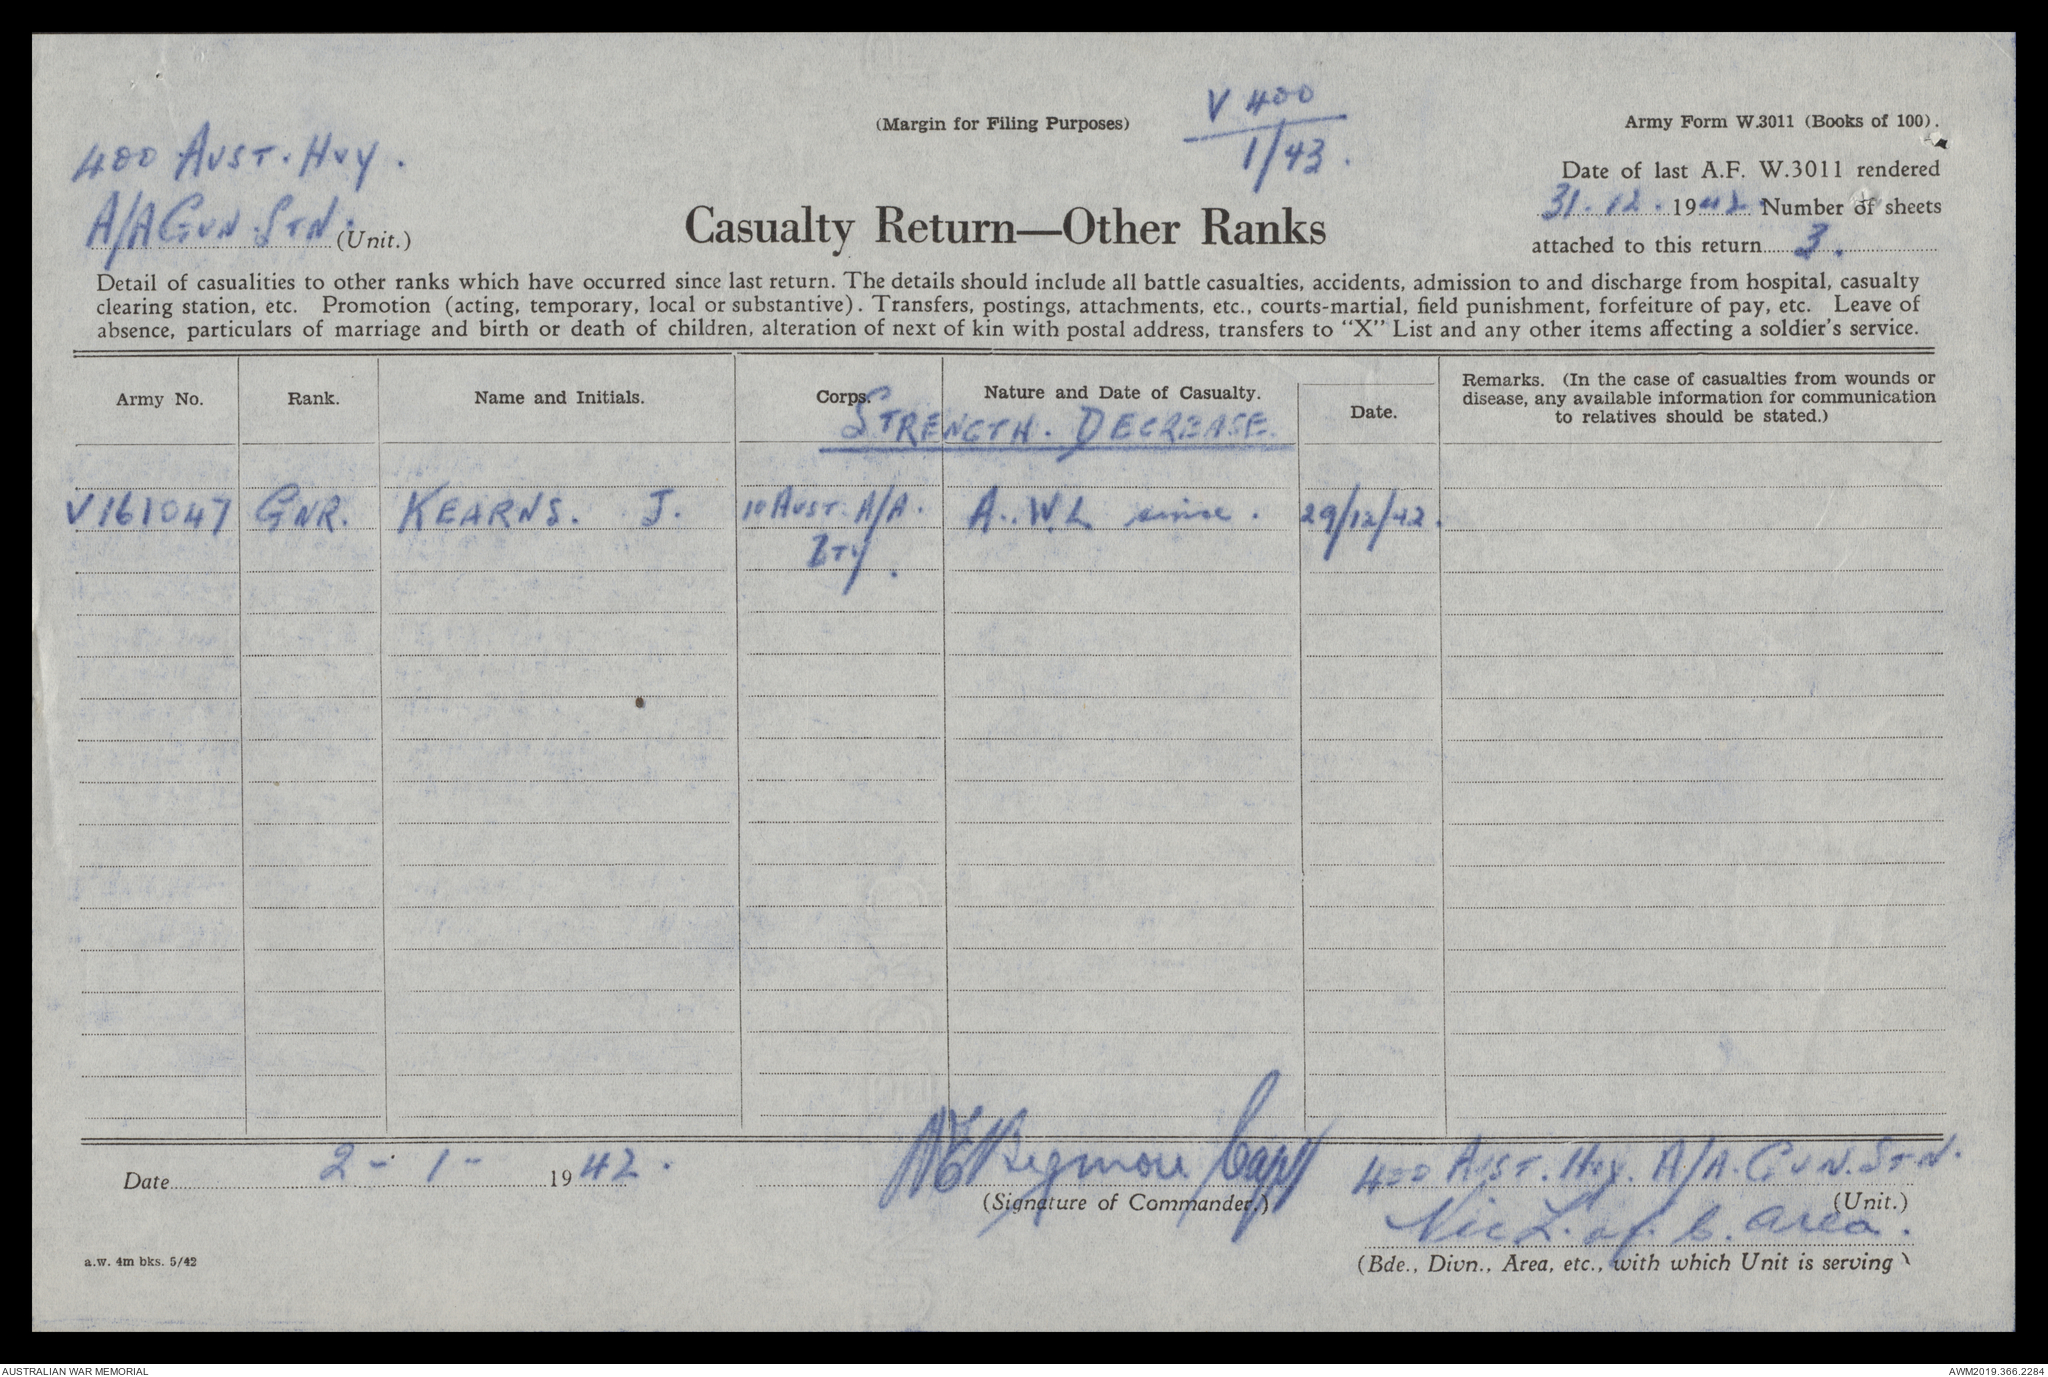 V 400
1/43.
(Margin for Filing Purposes)
Army Form W.3011 (Books of 100).
400 AUST. HVY.
A/A GUN. STN. (Unit.)
Casualty Return—Other Ranks
Date of last A.F. W.3011 rendered
31.12.1942. Number of sheets
attached to this return 3.
Detail of casualities to other ranks which have occurred since last return. The details should include all battle casualties, accidents, admission to and discharge from hospital, casualty
clearing station, etc. Promotion (acting, temporary, local or substantive). Transfers, postings, attachments, etc., courts-martial, field punishment, forfeiture of pay, etc. Leave of
absence, particulars of marriage and birth or death of children, alteration of next of kin with postal address, transfers to "X" List and any other items affecting a soldier's service.
Army No. Rank. Name and Initials. Corps. Nature and Date of Casualty. Date. Remarks. (In the case of casualties from wounds or
disease, any available information for communication
to relatives should be stated.)
STRENGTH. DECREASE.
V161047 GNR. KEARNS. J. 10 AUST. A/A. A.W.L since. 29/12/42.
BTY.
Date 2-1-1942. Capt 400 AUST. Hvy. A/A. GUN. STN.
(Signature of Commander.) (Unit.)
Vic L. of C. Area.
a.w. 4m bks. 5/42
(Bde., Divn., Area, etc., with which Unit is serving)
AUSTRALIAN WAR MEMORIAL
AWM2019.366.2284